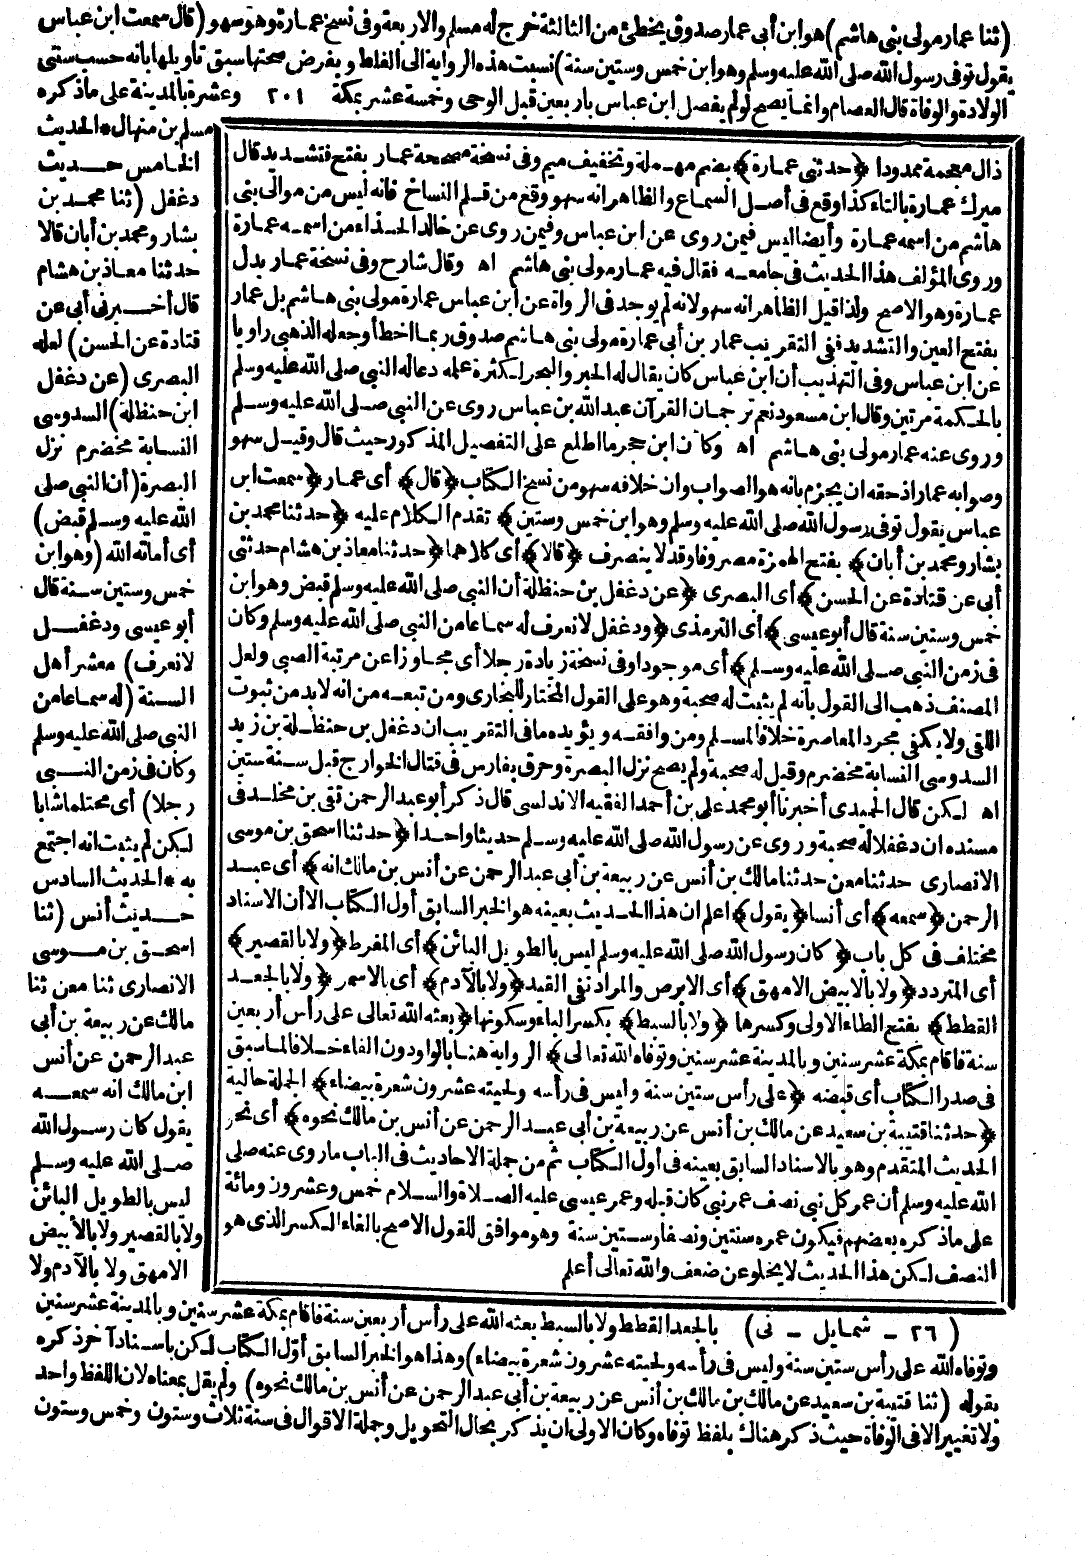 (ثنا عمار مولى بنى هاشم) هو ابن أبى عمار صدوق يخطئ من الثالثة خرج له مسلم والاربعة وفى نسخ عمارة وهو سهو (قال سمعت ابن عباس
يقول توفى رسول الله صلى الله عليه وسلم وهو ابن خمس وستين سنة) نسبت هذه الرواية الى الغلط و بفرض صحتها سبق تأويلها بانه حسب سنتى
الولادة والوفاة قال العصام وانما يصح لو لم يفصل ابن عباس بار بعين قبل الوحى وخمسة عشر بمكة ٢٠١ وعشرة بالمدينة على ماذكره
مسلم بن منهال * الحديث
الخامس حديث
دغفل (ثنا محمد بن
بشار ومحمد بن أبان قالا
حدثنا معاذ بن هشام
قال أخبرنى أبى عن
قتادة عن الحسن) لعله
البصرى (عن دغفل
ابن حنظلة) السدوسى
النسابة مخضرم نزل
البصرة (أن النبى صلى
الله عليه وسلم قبض)
أى أماته الله (وهو ابن
خمس وستين سنة قال
أبو عيسى ودغفل
لا نعرف) معشر أهل
السنة (له سماعا من
النبى صلى الله عليه وسلم
وكان فى زمن النبى
رجلا) أى محتلما شابا
لكن لم يثبت انه اجتمع
به * الحديث السادس
حديث أنس (ثنا
اسحق بن موسى
الانصارى ثنا معن ثنا
مالك عن ربيعة بن أبى
عبد الرحمن عن أنس
ابن مالك انه سمعه
يقول كان رسول الله
صلى الله عليه وسلم
ليس بالطويل البائن
ولا بالقصير ولا بالأبيض
الامهق ولا بالآدم ولا
ذال معجمة ممدودا ﴿حدثنى عمارة﴾ بضم مهملة وتخفيف ميم وفى نسخة صحيحة عمار بفتح فتشديد قال
ميرك عمارة بالتاء كذا وقع فى أصل السماع والظاهر انه سهو وقع من قلم النساخ فانه ليس من موالى بنى
هاشم من اسمه عمارة وأيضا ليس فيمن روى عن ابن عباس وفيمن روى عن خالد الحذاء من اسمه عمارة
وروى المؤلف هذا الحديث فى جامعه فقال فيه عمار مولى بنى هاشم اه وقال شارح وفى نسخة عمار بدل
عمارة وهو الاصح ولذا قيل الظاهر انه سهو لانه لم يوجد فى الرواة عن ابن عباس عمارة مولى بنى هاشم بل عمار
بفتح العين والتشديد ففى التقريب عمار بن أبى عمارة مولى بنى هاشم صدوق ربما اخطأ وجعله الذهبى راويا
عن ابن عباس وفى التهذيب أن ابن عباس كان يقال له الحبر والبحر لكثرة علمه دعا له النبى صلى الله عليه وسلم
بالحكمة مرتين وقال ابن مسعود نعم ترجمان القرآن عبد الله بن عباس روى عن النبى صلى الله عليه وسلم
وروى عنه عمار مولى بنى هاشم اه وكان ابن حجر ما اطلع على التفصيل المذكور حيث قال وقيل سهو
وصوابه عمار اذ حقه ان يجزم بانه هو الصواب وان خلافه سهو من نسخ الكتاب ﴿قال﴾ أى عمار ﴿سمعت ابن
عباس يقول توفى رسول الله صلى الله عليه وسلم وهو ابن خمس وستين﴾ تقدم الكلام عليه ﴿حدثنا محمد بن
بشار ومحمد بن أبان﴾ بفتح الهمزة مصروفا وقد لا ينصرف ﴿قالا﴾ أى كلاهما ﴿حدثنا معاذ بن هشام حدثنى
أبى عن قتادة عن الحسن﴾ أى البصرى ﴿عن دغفل بن حنظلة أن النبى صلى الله عليه وسلم قبض وهو ابن
خمس وستين سنة قال أبو عيسى﴾ أى الترمذى ﴿ودغفل لا نعرف له سماعا من النبى صلى الله عليه وسلم وكان
فى زمن النبى صلى الله عليه وسلم﴾ أى موجودا وفى نسخة زيادة رجلا أى مجاوزا عن مرتبة الصبى ولعل
المصنف ذهب الى القول بأنه لم يثبت له صحبة وهو على القول المختار للبخارى ومن تبعه من انه لا بد من ثبوت
اللقى ولا يكفى مجرد المعاصرة خلافا لمسلم ومن وافقه ويؤيده ما فى التقريب ان دغفل بن حنظلة بن زيد
السدوسى النسابة مخضرم وقيل له صحبة ولم يصح نزل البصرة وحرق بفارس فى قتال الخوارج قبل سنة ستين
اه لكن قال الحميدى أخبرنا أبو محمد على بن أحمد الفقيه الاندلسى قال ذكر أبو عبد الرحمن تقى بن مخلد فى
مسنده ان دغفلا له صحبة وروى عن رسول الله صلى الله عليه وسلم حديثا واحدا ﴿حدثنا اسحق بن موسى
الانصارى حدثنا معن حدثنا مالك بن أنس عن ربيعة بن أبى عبد الرحمن عن أنس بن مالك انه﴾ أى عبد
الرحمن ﴿سمعه﴾ أى أنسا ﴿يقول﴾ اعلم ان هذا الحديث بعينه هو الخبر السابق أول الكتاب الا أن الاسناد
مختلف فى كل باب ﴿كان رسول الله صلى الله عليه وسلم ليس بالطويل البائن﴾ أى المفرط ﴿ولا بالقصير﴾
أى المتردد ﴿ولا بالابيض الامهق﴾ أى الابرص والمراد نفى القيد ﴿ولا بالآدم﴾ أى بالاسمر ﴿ولا بالجعد
القطط﴾ بفتح الطاء الاولى وكسرها ﴿ولا بالسبط﴾ بكسر الباء وسكونها ﴿بعثه الله تعالى على رأس أربعين
سنة فاقام بمكة عشر سنين وبالمدينة عشر سنين وتوفاه الله تعالى﴾ الرواية هنا بالواو دون الفاء خلافا لما سبق
فى صدر الكتاب أى قبضه ﴿على رأس ستين سنة وليس فى رأسه ولحيته عشرون شعرة بيضاء﴾ الجملة حالية
﴿حدثنا قتيبة بن سعيد عن مالك بن أنس عن ربيعة بن أبى عبد الرحمن عن أنس بن مالك نحوه﴾ أى نحو
الحديث المتقدم وهو بالاسناد السابق بعينه فى أول الكتاب ثم من جملة الاحاديث فى الباب ما روى عنه صلى
الله عليه وسلم أن عمر كل نبى نصف عمر نبى كان قبله وعمر عيسى عليه الصلاة والسلام خمس وعشرون ومائة
على ما ذكره بعضهم فيكون عمره سنتين ونصفا وستين سنة وهو موافق للقول الاصح بالغاء الكسر الذى هو
النصف لكن هذا الحديث لا يخلو عن ضعف والله تعالى أعلم
(٢٦ - شمايل - نى) بالجعد القطط ولا بالسبط بعثه الله على رأس أربعين سنة فاقام بمكة عشر سنين وبالمدينة عشر سنين
وتوفاه الله على رأس ستين سنة وليس فى رأسه ولحيته عشرون شعرة بيضاء) وهذا هو الخبر السابق أول الكتاب لكن باسناد آخر ذكره
بقوله (ثنا قتيبة بن سعيد عن مالك بن مالك بن أنس عن ربيعة بن أبى عبد الرحمن عن أنس بن مالك نحوه) ولم يقل بمعناه لان اللفظ واحد
ولا تغيير الا فى الوفاة حيث ذكر هناك بلفظ توفاه وكان الاولى ان يذكر بحال التحويل وجملة الاقوال فى سنة ثلاث وستون وخمس وستون